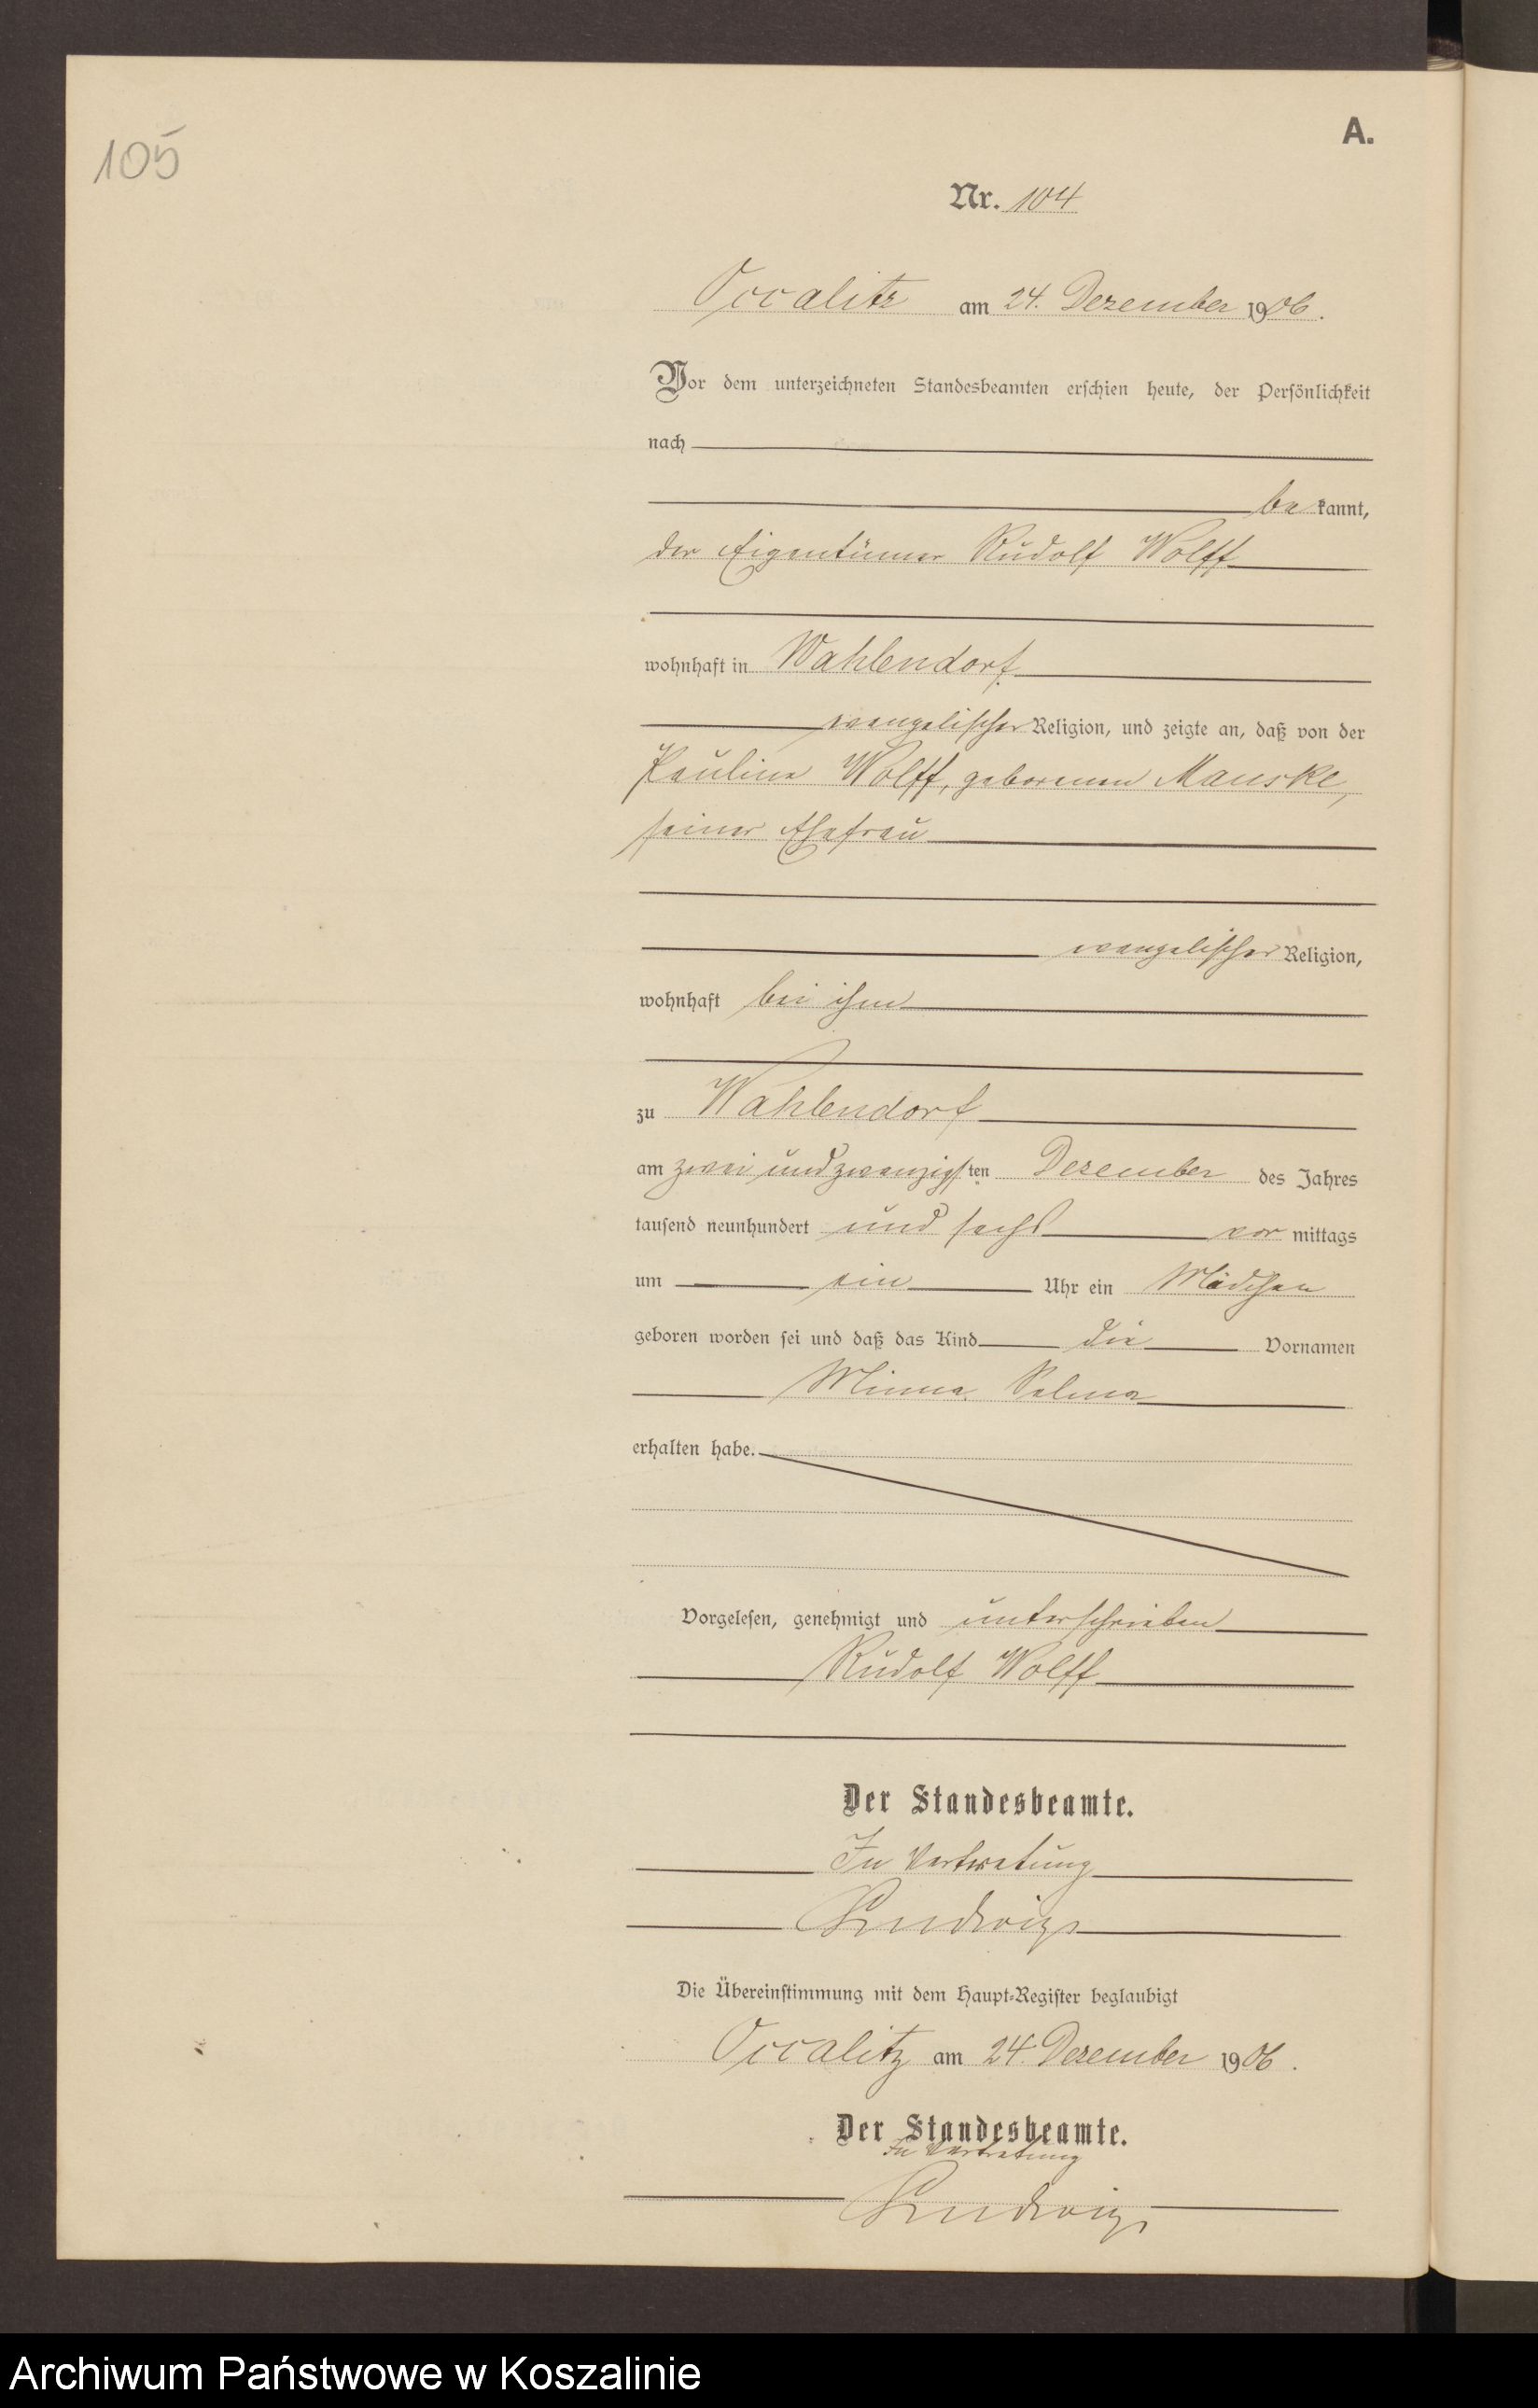 105
A.
Nr. 104
Occalitz am 24. Dezember 1906.
Vor dem unterzeichneten Standesbeamten erschien heute, der Persönlichkeit
nach
be kannt,
der Eigentümer Rudolf Wolff
wohnhaft in Wahlendorf
evangelischer Religion, und zeigte an, daß von der
Pauline Wolff, geborenen Manske,
seiner Ehefrau
evangelischer Religion,
wohnhaft bei ihm
zu Wahlendorf
am zwei und zwanzigsten Dezember des Jahres
tausend neunhundert und sechs vor mittags
um ein Uhr ein Mädchen
geboren worden sei und daß das Kind die Vornamen
Minna Selma
erhalten habe.
Vorgelesen, genehmigt und unterschrieben
Rudolf Wolff
Der Standesbeamte.
In Vertretung
Ludwig
Die Übereinstimmung mit dem Haupt-Register beglaubigt
Occalitz am 24. Dezember 1906.
Der Standesbeamte.
In Vertretung
Ludwig
Archiwum Państwowe w Koszalinie